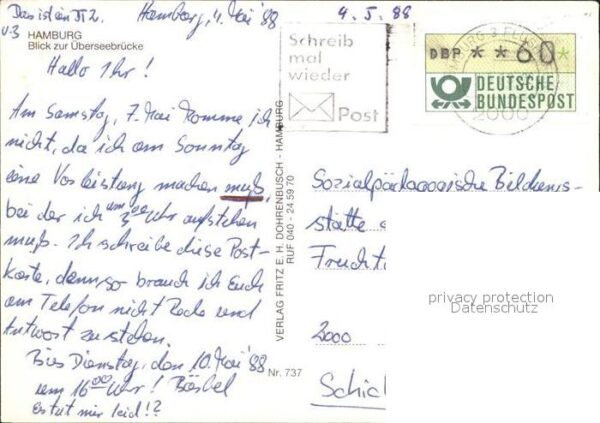 Das ist ein
Hamburg, 4. Mai '88
4. 5. 88
HAMBURG
Blick zur Überseebrücke
Hallo Ihr!
Am Samstag, 7. Mai komme ich
nicht, da ich am Sonntag
eine Vorleistung machen muß,
bei der ich um 3 00 Uhr aufstehen
muß. Ich schreibe diese Post-
karte, denn so brauch ich Euch
am Telefon nicht Rede und
Antwort zu stehen.
Bis Dienstag, den 10. Mai '88
um 16 00 Uhr! Bärbel
Es tut mir leid!?
VERLAG FRITZ E. H. DOHRENBUSCH - HAMBURG
RUF 040 - 24 59 70
Nr. 737
Schreib
mal
wieder
Post
DBP * * 60 *
DEUTSCHE
BUNDESPOST
2000
Sozialpädagogische Bildungs-
stätte
Frucht
2000
Schi
privacy protection
Datenschutz